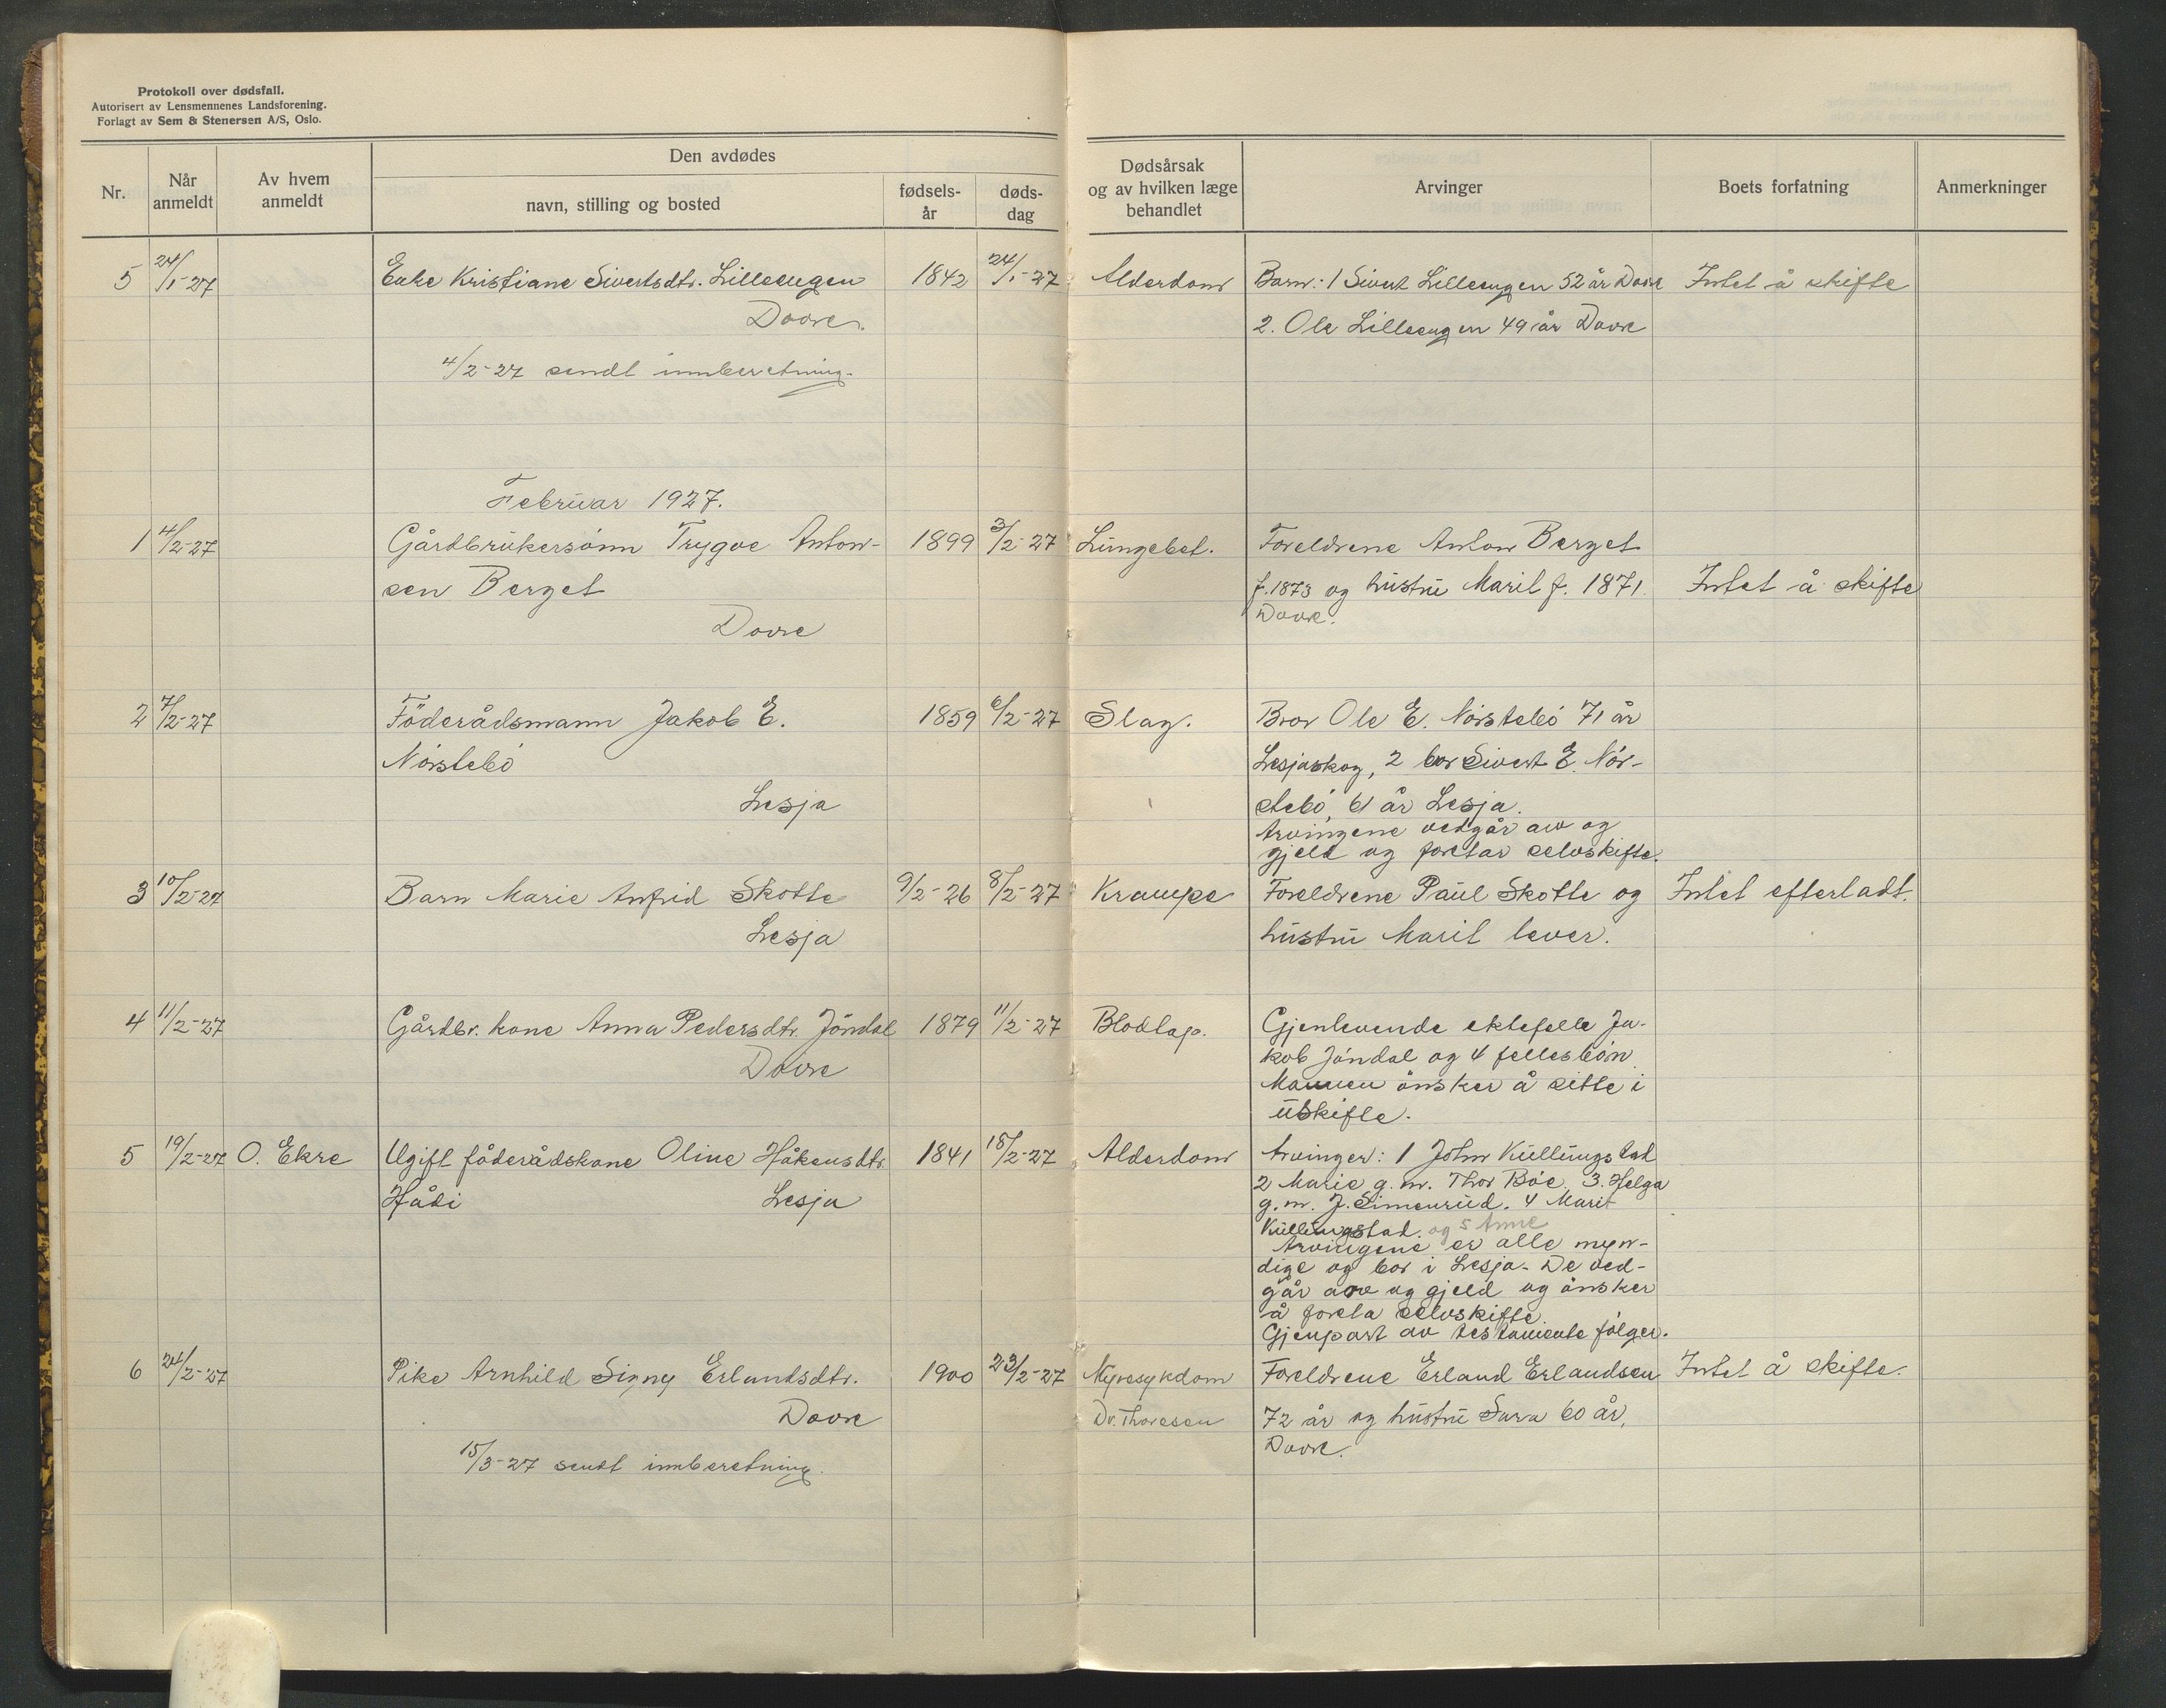 Protokoll over dødsfall.
Autorisert av Lensmennenes Landsforening.
Forlagt av Sem & Stenersen A/S, Oslo.
Nr.
Når anmeldt
Av hvem anmeldt
Den avdødes
navn, stilling og bosted
fødselsår
dødsdag
Dødsårsak og av hvilken læge behandlet
Arvinger
Boets forfatning
Anmerkninger
5 24/1-27 Enke Kristiane Sivertsdtr. Lilleengen 1842 24/1-27 Alderdom Barn: 1 Sivert Lilleengen 52 år Dovre Intet å skifte
Dovre. 2. Ole Lilleengen 49 år Dovre
4/2-27 sendt innberetning.
Februar 1927.
1 4/2-27 Gårdbrukersønn Trygve Anton- 1899 3/2-27 Lungebet. Foreldrene Anton Berget
sen Berget f. 1873 og hustru Marit f. 1871. Intet å skifte
Dovre Dovre.
2 7/2-27 Föderådsmann Jakob E. 1859 6/2-27 Slag. Bror Ole E. Nörstebö 71 år
Nörstebö Lesjaskog, 2 bor Sivert E. Nör-
Lesja stebö, 61 år Lesja.
Arvingene vedgår arv og
gjeld og foretar selvskifte.
3 10/2-27 Barn Marie Anfrid Skotte 9/2-26 8/2-27 Krampe Foreldrene Paul Skotte og Intet efterladt.
Lesja hustru Marit lever.
4 11/2-27 Gårdbr. kone Anna Pedersdtr. Jöndal 1879 11/2-27 Blodlap. Gjenlevende ektefelle Ja-
Dovre kob Jöndal og 4 fellesbörn.
Mannen önsker å sitte i
uskifte.
5 19/2-27 O. Ekre Ugift föderådskone Oline Håkensdtr. 1841 18/2-27 Alderdom Arvinger: 1 John Kullungstad
Hådi Lesja 2 Marie g. m. Thor Böe, 3. Helga
g. m. J. Simenrud. 4 Marit
Kullungstad. og 5 Anne
Arvingene er alle myn-
dige og bor i Lesja. De ved-
går arv og gjeld og önsker
å foreta selvskifte.
Gjenpart av testamente fölger.
6 24/2-27 Pike Arnhild Signy Erlandsdtr. 1900 23/2-27 Nyresykdom Foreldrene Erland Erlandsen Intet å skifte.
Dovre Dr. Thoresen 72 år og hustru Sara 60 år,
Dovre.
15/3-27 sendt innberetning.